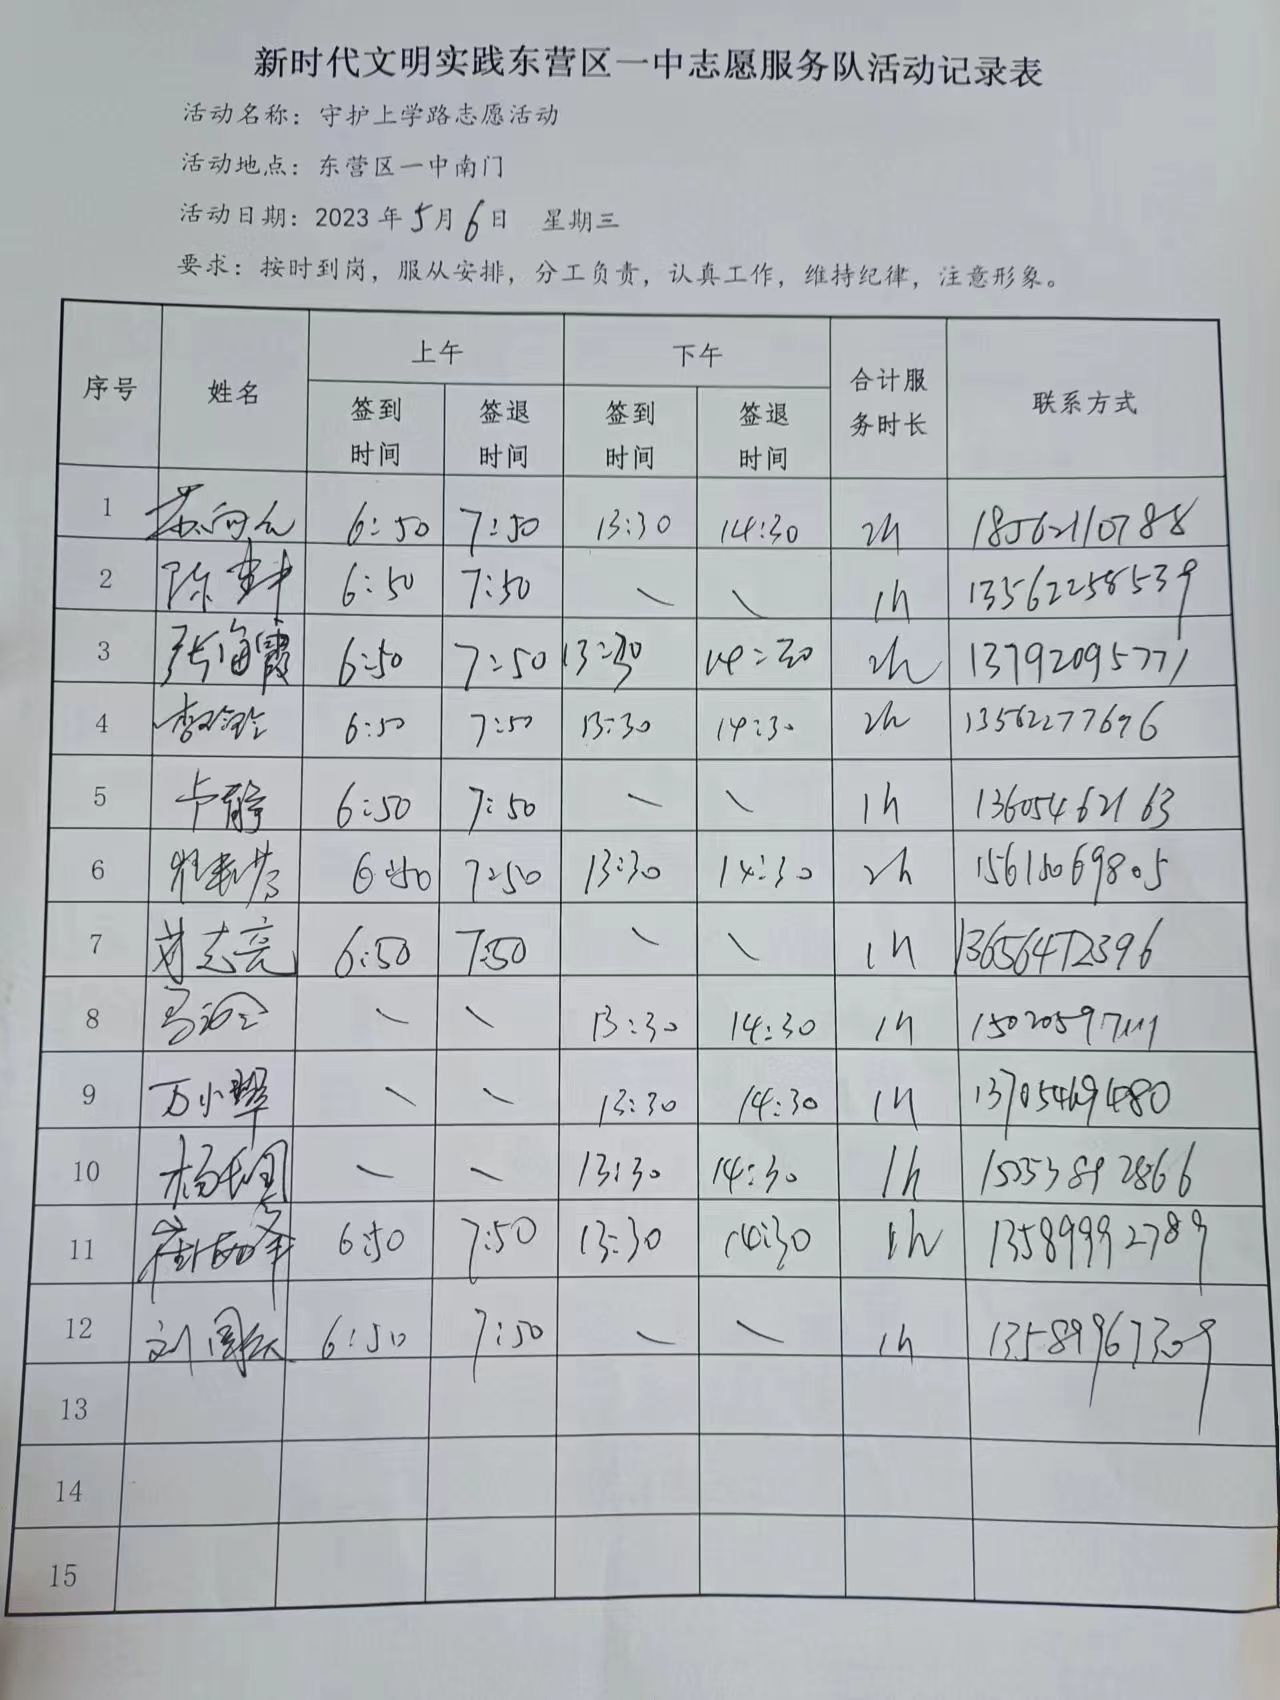 新时代文明实践东营区一中志愿服务队活动记录表
活动名称：守护上学路志愿活动
活动地点：东营区一中南门
活动日期：2023年5月6日 星期三
要求：按时到岗，服从安排，分工负责，认真工作，维持纪律，注意形象。
序号 姓名 上午 下午 合计服务时长 联系方式
签到时间 签退时间 签到时间 签退时间
1 6:50 7:50 13:30 14:30 2h 18562110788
2 6:50 7:50 \ \ 1h 13562258539
3 张海霞 6:50 7:50 13:30 14:30 2h 13792095771
4 李玲玲 6:50 7:50 13:30 14:30 2h 13562277696
5 卢静 6:50 7:50 \ \ 1h 13605462163
6 6:50 7:50 13:30 14:30 2h 15615069805
7 志亮 6:50 7:50 \ \ 1h 13656472396
8 \ \ 13:30 14:30 1h
9 万小翠 \ \ 13:30 14:30 1h
10 \ \ 13:30 14:30 1h
11 6:50 7:50 13:30 14:30 13589992789
12 6:50 7:50 \ \ 1h 13589967309
13
14
15